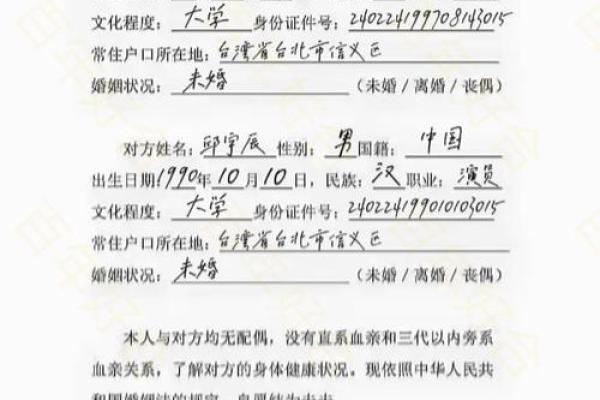 文化程度：大学 身份证件号：240224199708143015
常住户口所在地：台湾省台北市信义区
婚姻状况：未婚 （未婚 / 离婚 / 丧偶）
对方姓名：邱宇辰 性别：男 国籍：中国
出生日期：1990年10月10日，民族：汉 职业：演员
文化程度：大学 身份证件号：240224199010103015
常住户口所在地：台湾省台北市信义区
婚姻状况：未婚 （未婚 / 离婚 / 丧偶）
本人与对方均无配偶，没有直系血亲和三代以内旁系
血亲关系，了解对方的身体健康状况。现依照中华人民共
和国婚姻法的规定，自愿结为夫夫